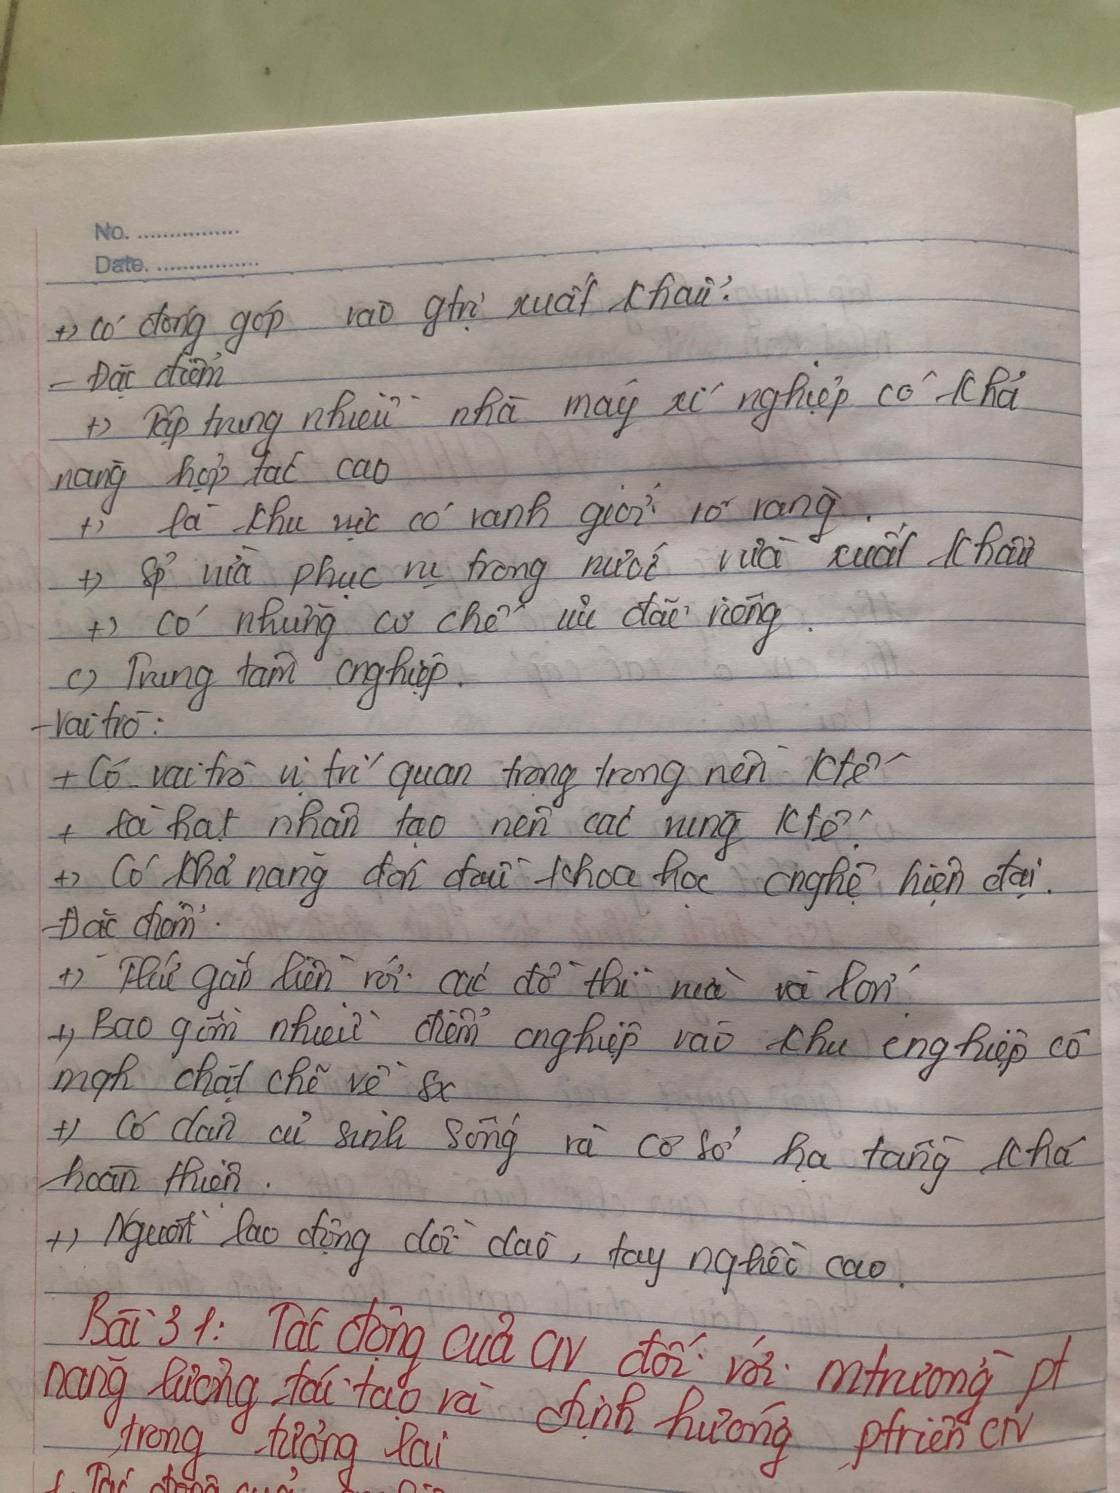 No. ................
Date. ................
+) có đóng góp vào gtrị xuất khẩu.
- Đặc điểm
+) Tập trung nhiều nhà máy xí nghiệp có khả
năng hợp tác cao
+) là khu vực có ranh giới rõ ràng.
+) Sp vừa phục vụ trong nước vừa xuất khẩu
+) có những cơ chế ưu đãi riêng.
c) Trung tâm cnghiệp.
- Vai trò:
+ Có vai trò vị trí quan trọng trong nền ktế
+ là hạt nhân tạo nên các vùng ktế.
+) Có khả năng đón đầu khoa học cnghệ hiện đại.
- Đặc điểm.
+) gắn liền với các đô thị vừa và lớn
+) Bao gồm nhiều điểm cnghiệp vào khu cnghiệp có
mqh chặt chẽ về sx
+) Có dân cư sinh sống và cơ sở hạ tầng khá
hoàn thiện.
+) Người lao động dồi dào, tay nghề cao.
Bài 31: Tác động của CN đối với mtrường pt
năng lượng tái tạo và định hướng ptriển CN
trong tương lai
1. Tác động của